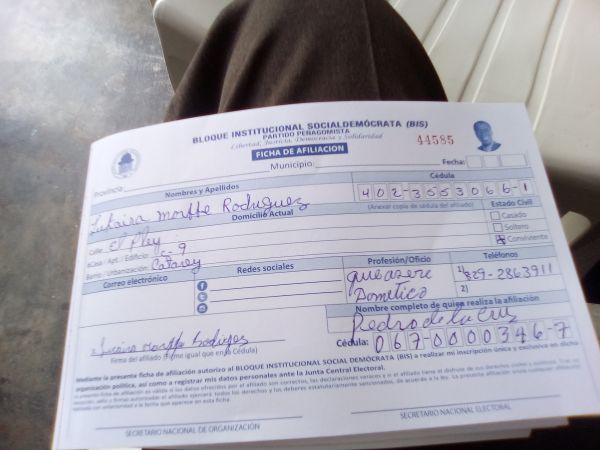 BLOQUE INSTITUCIONAL SOCIALDEMÓCRATA (BIS)
PARTIDO PEÑAGOMISTA
Libertad, Justicia, Democracia y Solidaridad
44585
FICHA DE AFILIACION
Provincia Municipio: Fecha:
Nombres y Apellidos Cédula
Morffe Rodriguez 402-3553066-1
(Anexar copia de cédula del afiliado)
Domicilio Actual Estado Civil
Calle: El Play Casado
#Casa / Apt. / Edificio: 9 Soltero
Barrio / Urbanización: Conviviente
Correo electrónico Redes sociales Profesión/Oficio Teléfonos
queasere 1) 829-2863911
Dometico 2)
Nombre completo de quien realiza la afiliación
Pedro de la Cruz
Morffe
Firma del afiliado (Firme igual que en la Cédula) Cédula: 067-0000346-7
Mediante la presente ficha de afiliación autorizo al BLOQUE INSTITUCIONAL SOCIAL DEMÓCRATA (BIS) a realizar mi inscripción única y exclusiva en dicho
organización política, así como a registrar mis datos personales ante la Junta Central Electoral.
SECRETARIO NACIONAL DE ORGANIZACIÓN SECRETARIO NACIONAL ELECTORAL